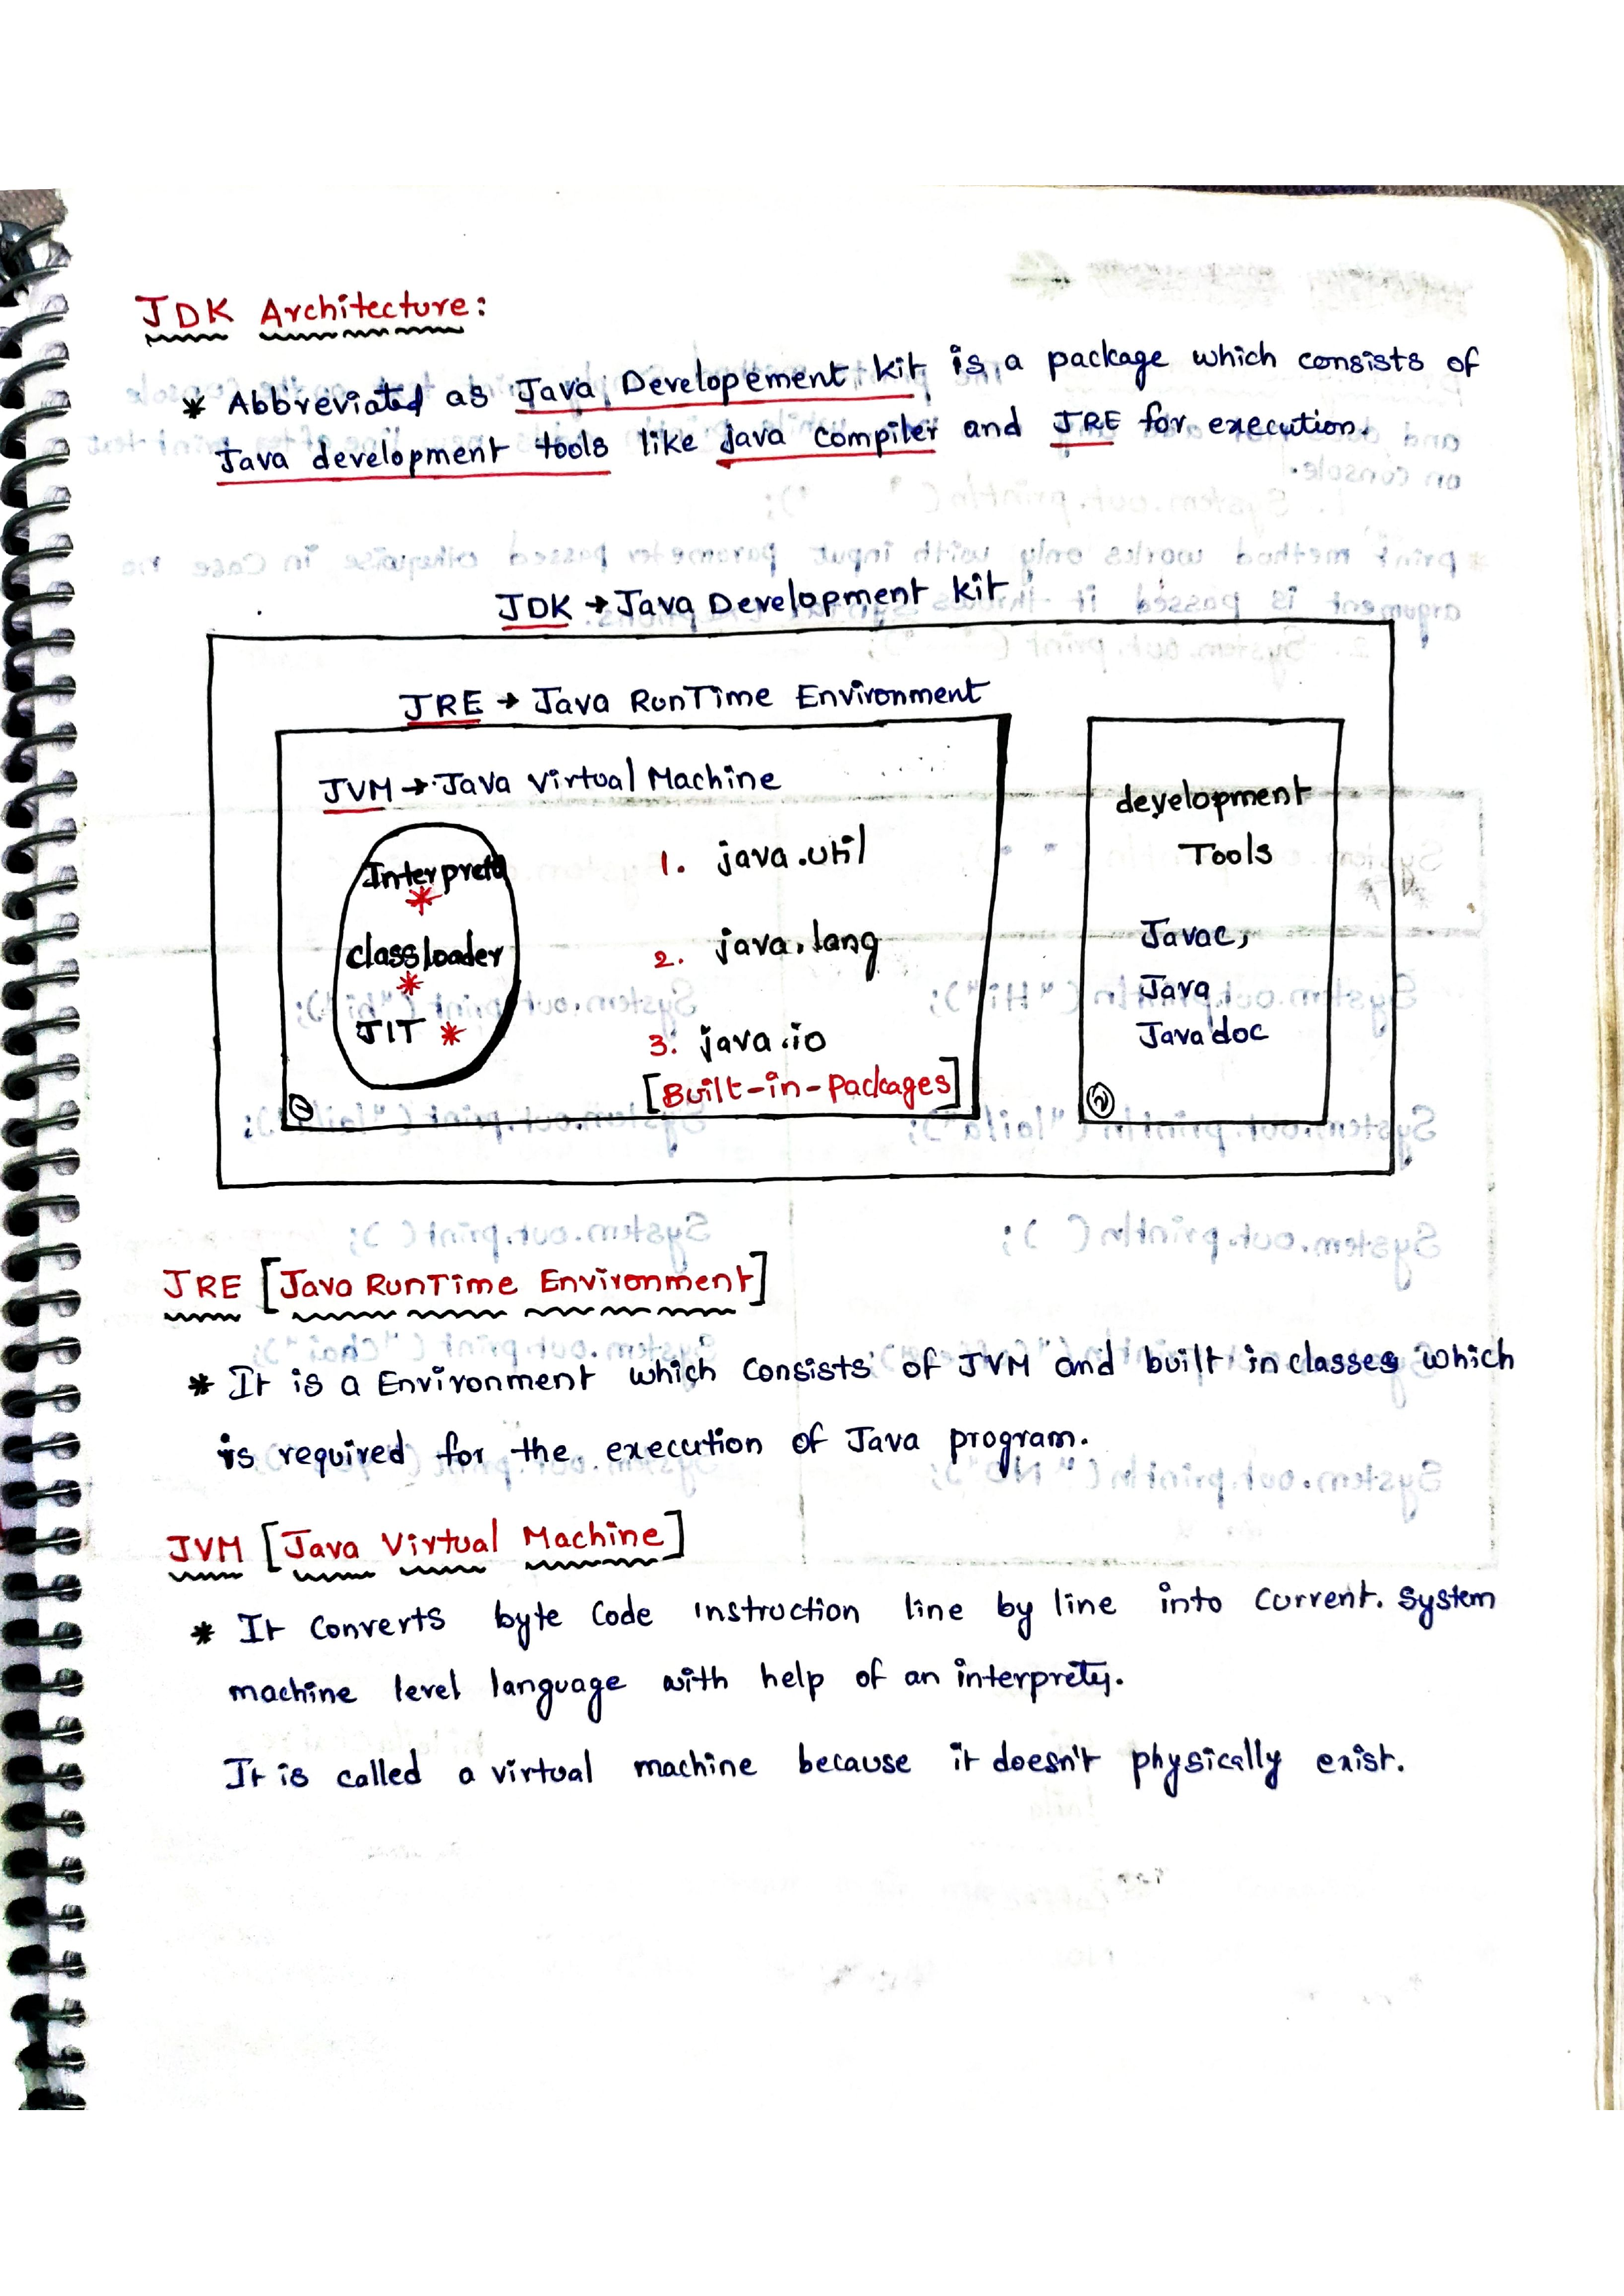 JDK Architecture:
* Abbreviated as Java Developement kit is a package which consists of
Java development tools like java compiler and JRE for execution.
JDK → Java Development kit
JRE → Java RunTime Environment
JVM → Java Virtual Machine
Interprety
class loader
JIT
1. java.util
2. java.lang
3. java.io
[Built-in-Packages]
1
development
Tools
Javac,
Java,
Javadoc
2
JRE [Java RunTime Environment]
* It is a Environment which consists of JVM and built in classes which
is required for the execution of Java program.
JVM [Java Virtual Machine]
* It converts byte code instruction line by line into current. system
machine level language with help of an interprety.
It is called a virtual machine because it doesn't physically exist.